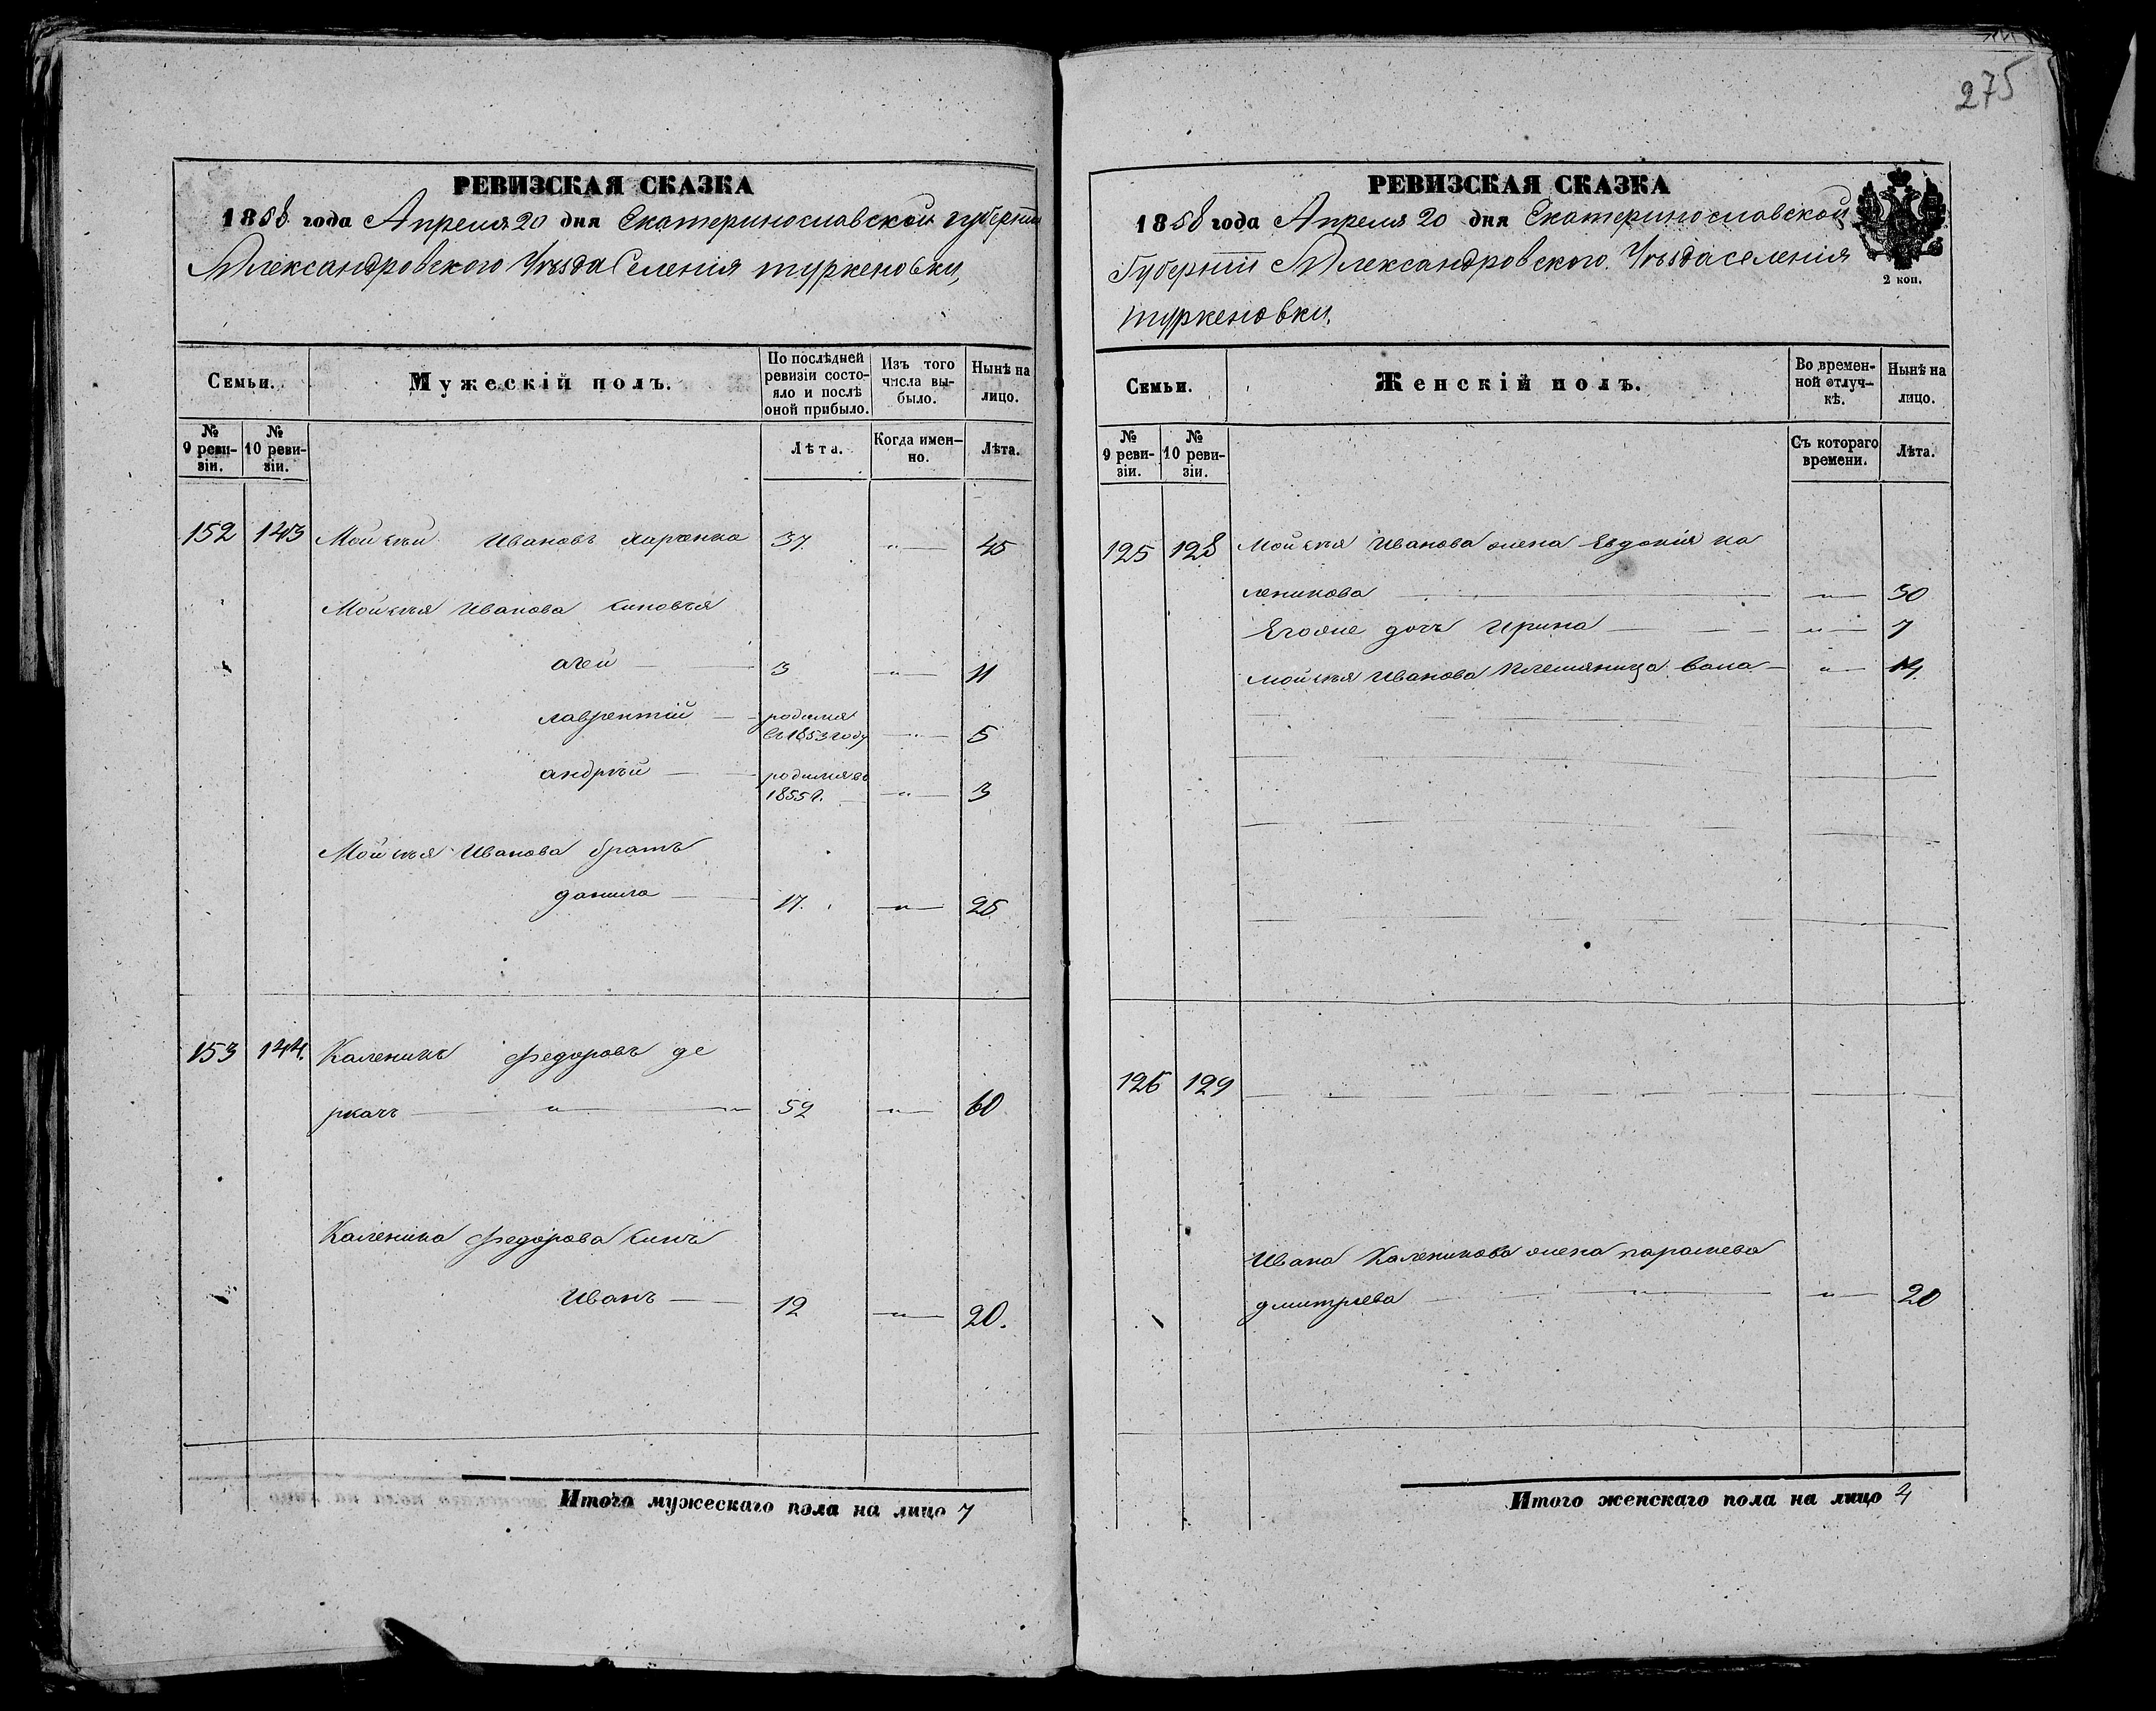 275
РЕВИЗСКАЯ СКАЗКА
1858 года Апреля 20 дня Екатеринославской губернии
Александровского Уезда Селения туркеновки,
Семьи.
Мужескій полъ.
По послѣдней ревизіи состояло и послѣ оной прибыло.
Изъ того числа выбыло.
Нынѣ на лицо.
№ 9 ревизіи.
№ 10 ревизіи.
Лѣта.
Когда именно.
Лѣта.
152 143 Мойсѣй Ивановъ 37 " 45
Мойсѣя Иванова синовья
3 " 11
лаврентій родился въ 1853 году " 5
андрѣй родился въ 1855 г. " 3
Мойсѣя Иванова братъ
данило 17. " 25
153 144. Каленикъ Федоровъ де
ркачъ " " 52 " 60
Каленика Федорова синъ
Иванъ 12 " 20.
Итого мужескаго пола на лицо 7
РЕВИЗСКАЯ СКАЗКА
1858 года Апреля 20 дня Екатеринославской
Губернии Александровского Уезда селения
туркеновки,
2 коп.
Семьи.
Женскій полъ.
Во временной отлучкѣ.
Нынѣ на лицо.
№ 9 ревизіи.
№ 10 ревизіи.
Съ котораго времени.
Лѣта.
125 128 Мойсѣя Иванова жена Евдокія ка
леникова " 30
Егоже дочь Ирина " 7
Мойсѣя Иванова племяница "
126 129
Ивана Каленикова жена параскева
дмитрѣева " 20
Итого женскаго пола на лицо 4